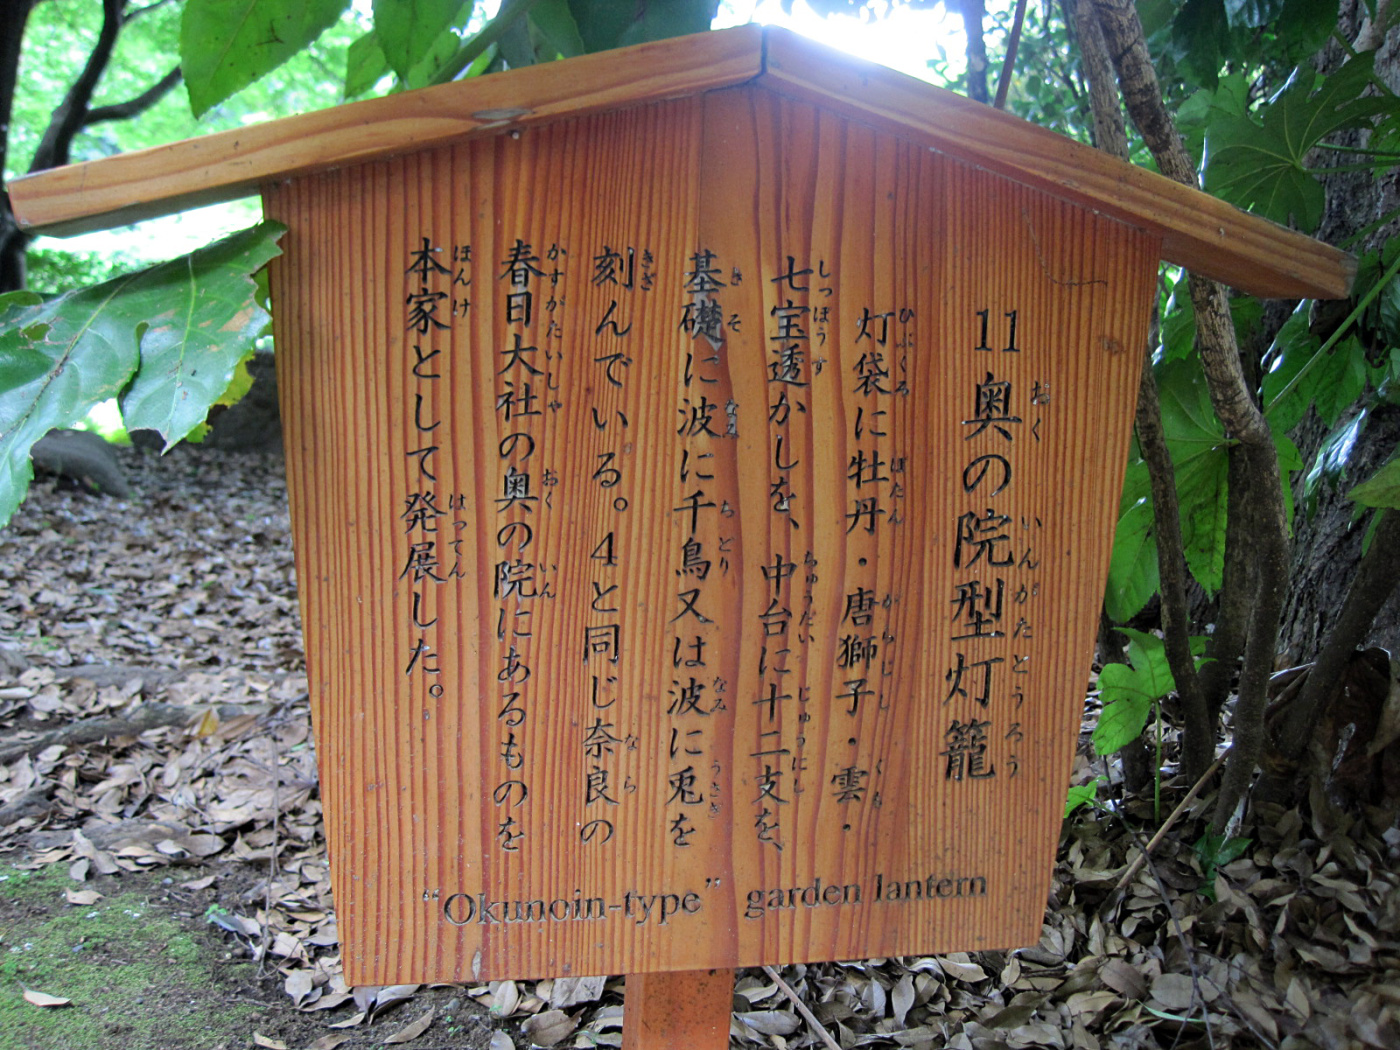 11 奥の院型灯籠
灯袋に牡丹・唐獅子・雲・
七宝透かしを、中台に十二支を、
基礎に波に千鳥又は波に兎を
刻んでいる。4と同じ奈良の
春日大社の奥の院にあるものを
本家として発展した。
“Okunoin-type” garden lantern